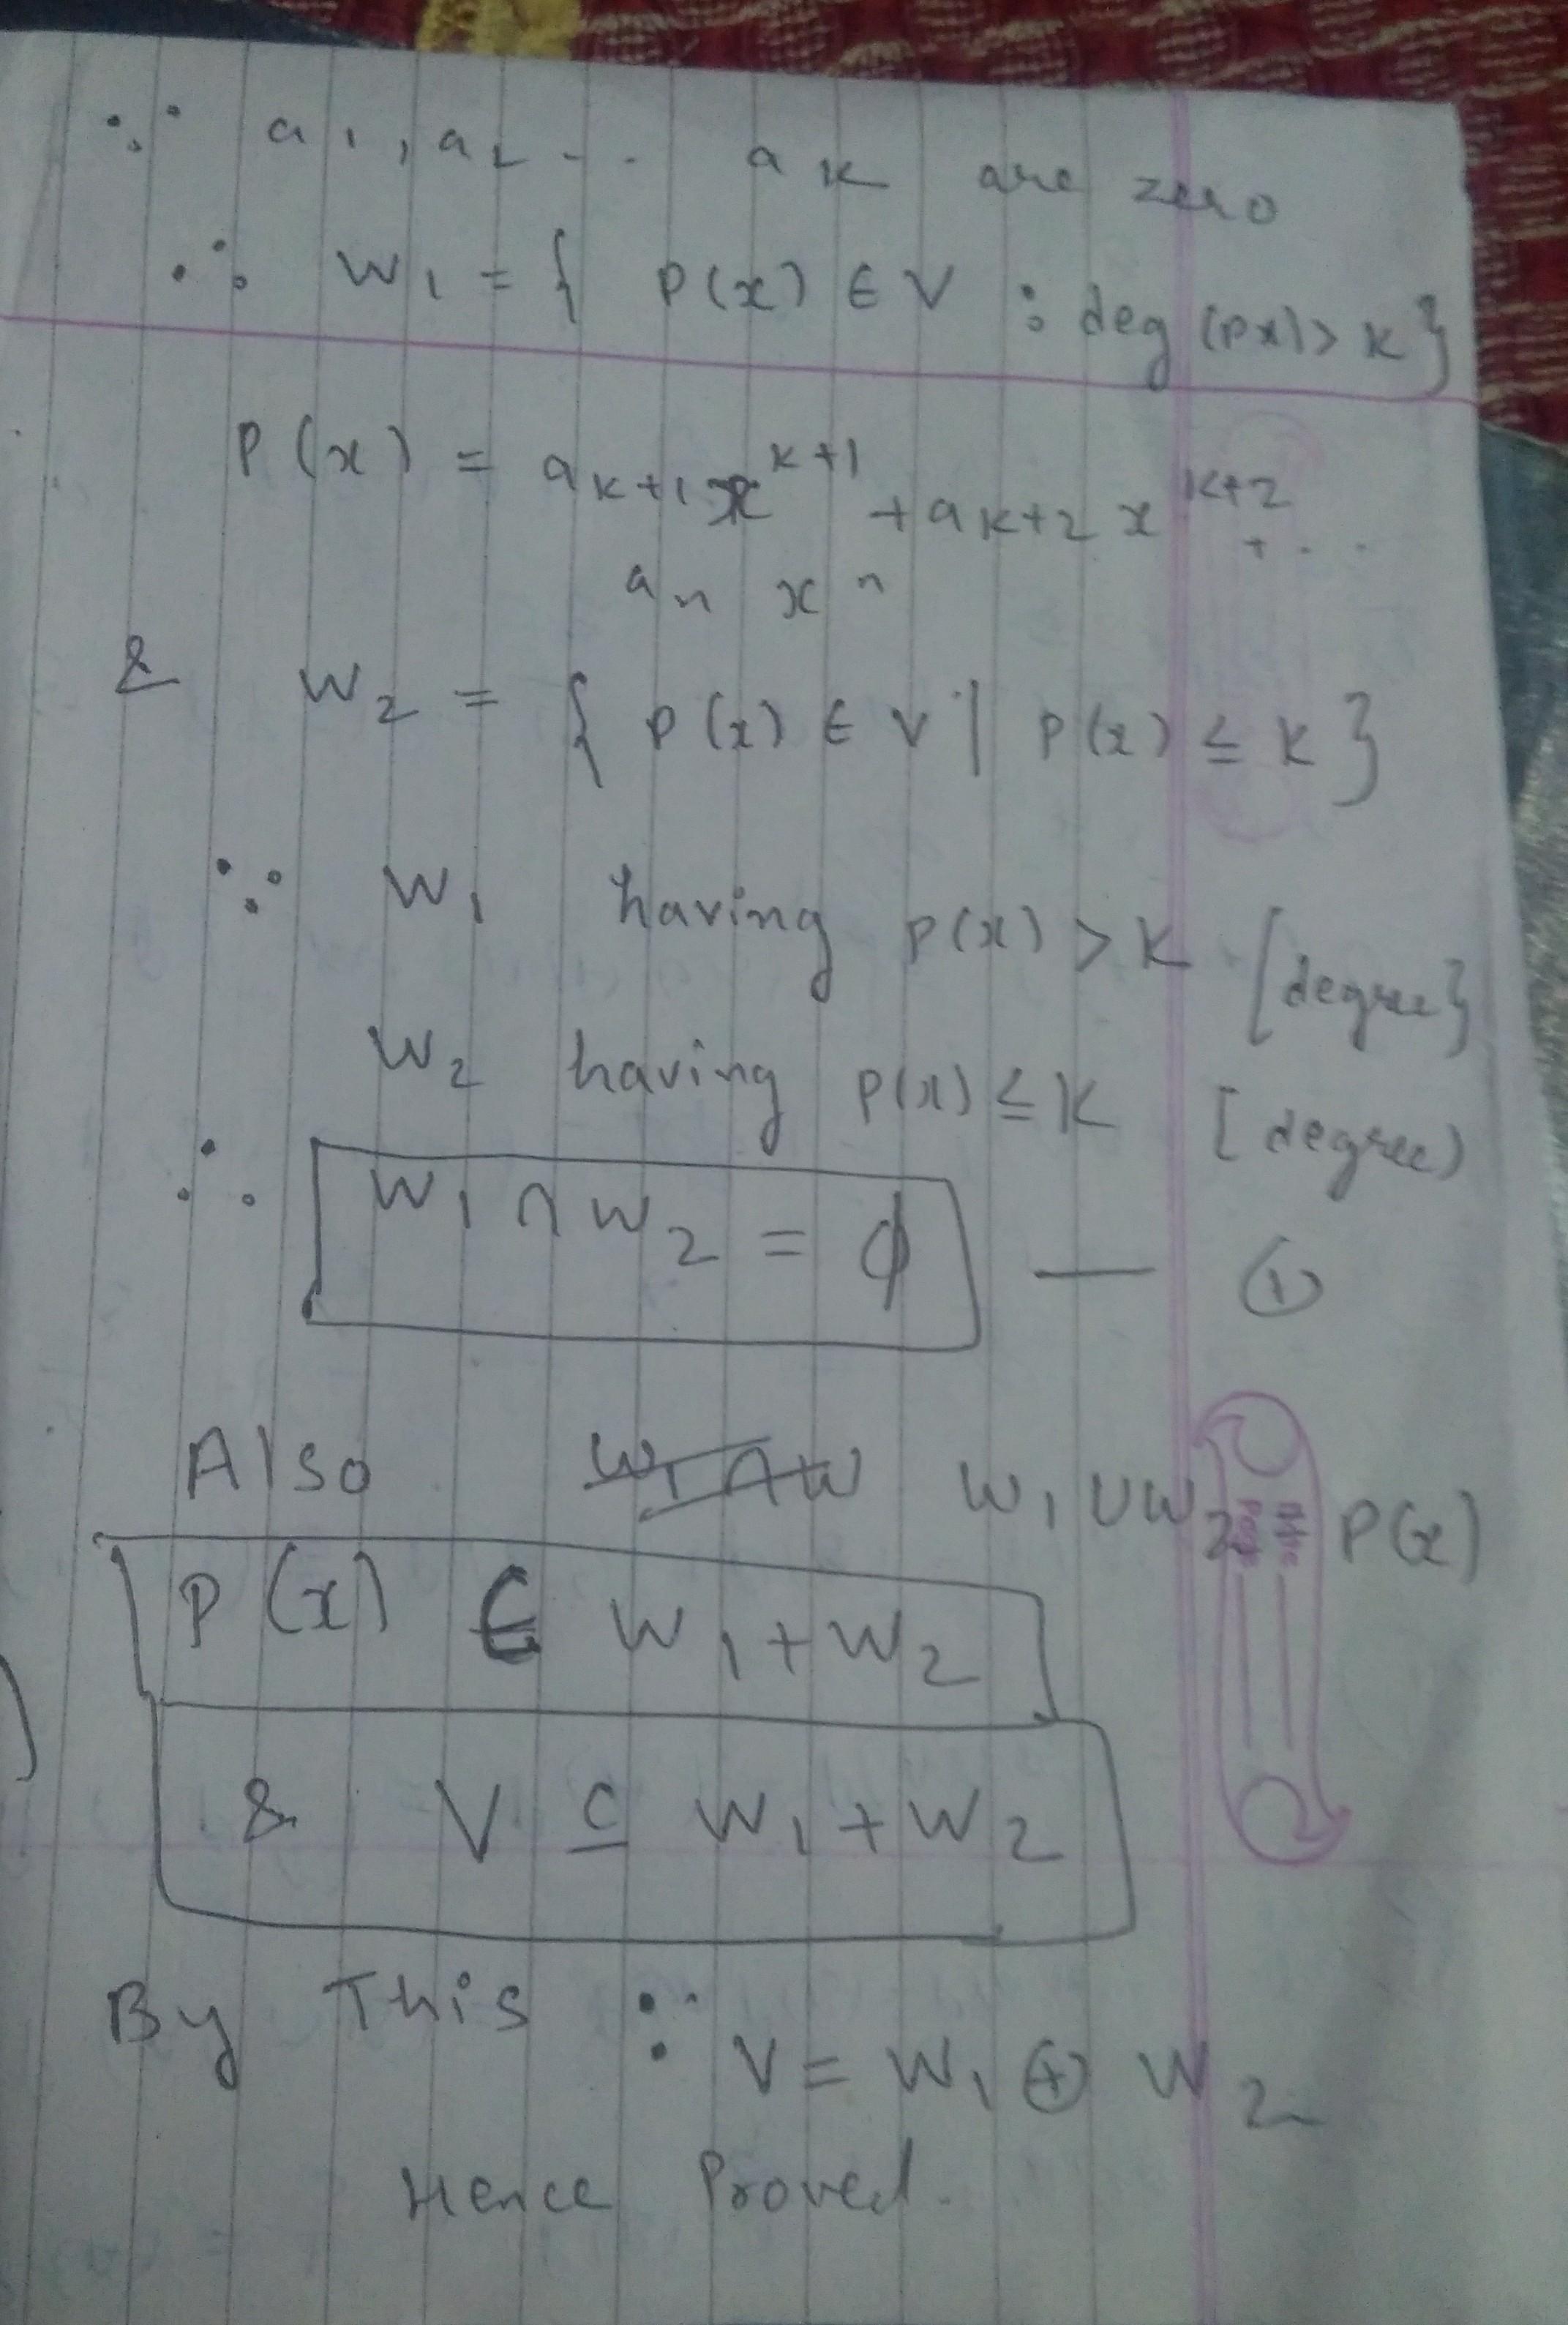 ∵ a1, a2 - - ak are zero
∴ W1 = { P(x) ∈ V : deg (px)> k }
P(x) = ak+1 x^k+1 + ak+2 x^k+2 + ..
an x^n
& W2 = { P(x) ∈ V | P(x) ≤ k }
∵ W1 having P(x) > k [degree}
W2 having P(x) ≤ k [degree)
∴ W1 ∩ W2 = ϕ — ①
Also W1 ∩ W W1 ∪ W2 = P(x)
P(x) ∈ W1 + W2
& V ⊆ W1 + W2
By This ∵ V = W1 ⊕ W2
Hence Proved.